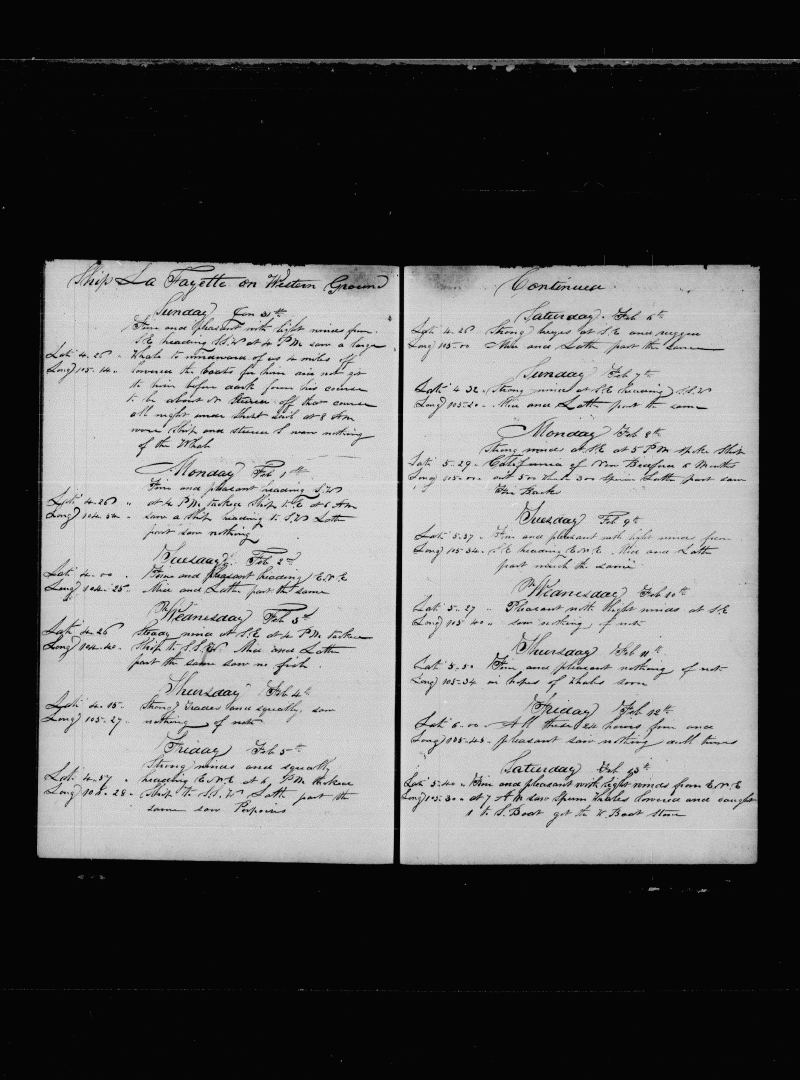 Ship La Fayette on Western Ground
Sunday Jan 31th
Fine and pleasant with light winds from
S.E. heading S.S.W at 4 P.M. saw a large
Lati 4.26 " Whale to windward of us 4 miles off
Long 105.14 " lowered the boats for him did not get
to him before dark from his course
to be about steered off that course
all night under short sail at 8 A.M
wore Ship and steered saw nothing
of the Whale
Monday Feb 1th
Fine and pleasant heading S.W
Lati 4.26 " at 4 P.M. tacked Ship to E at 6 A.M
Long 104.34 " saw a Ship heading to S.W Latt
part saw nothing
Tuesday Feb 2d
Lati 4.00 " Fine and pleasant heading E.N.E
Long 104.25 " Mid and Latt part the same
Wednesday Feb 3d
Lati 4.26 Steady wind at S.E at 4 P.M. tacked
Long 104.40 " Ship to S.S.W. Mid and Latt
part the same saw no fish
Thursday Feb 4th
Lati 4.15 " Strong Trades and squally saw
Long 105.27 " nothing of note
Friday Feb 5th
Strong winds and squally
Lati 4.37 " heading E.N.E at 6 P.M. tacked
Long 104.28 " Ship to S.S.W Latt part the
same saw Porpoises
Continued
Saturday Feb 6th
Lati 4.26 Strong breezes at S.E and rugged
Long 105.00 Mid and Latt part the same
Sunday Feb 7th
Lati 4.32 Strong wind at S.E heading S.S.W
Long 105.20 " Mid and Latt part the same
Monday Feb 8th
Strong winds at S.E at 5 P.M. spoke Ship
Lati 5.29 " California of New Bedford 5 Months
Long 105.00 " out 50 Whale 30 Sperm Latt part saw
Fin Backs
Tuesday Feb 9th
Lati 5.37 " Fine and pleasant with light winds from
Long 105.34 " S.E heading E.N.E. Mid and Latt
part much the same
Wednesday Feb 10th
Lati 5.27 " Pleasant with light winds at S.E
Long 105.40 " saw nothing of note
Thursday Feb 11th
Lati 5.50 Fine and pleasant nothing of note
Long 105.34 in hopes of Whales soon
Friday Feb 12th
Lati 6.00 " All these 24 hours fine and
Long 105.43 " pleasant saw nothing dull times
Saturday Feb 13th
Lati 5.40 " Fine and pleasant with light winds from E.N.E
Long 105.30 " at 7 A.M saw Sperm Whales lowered and caught
1 to S. Boat got the W. Boat stove